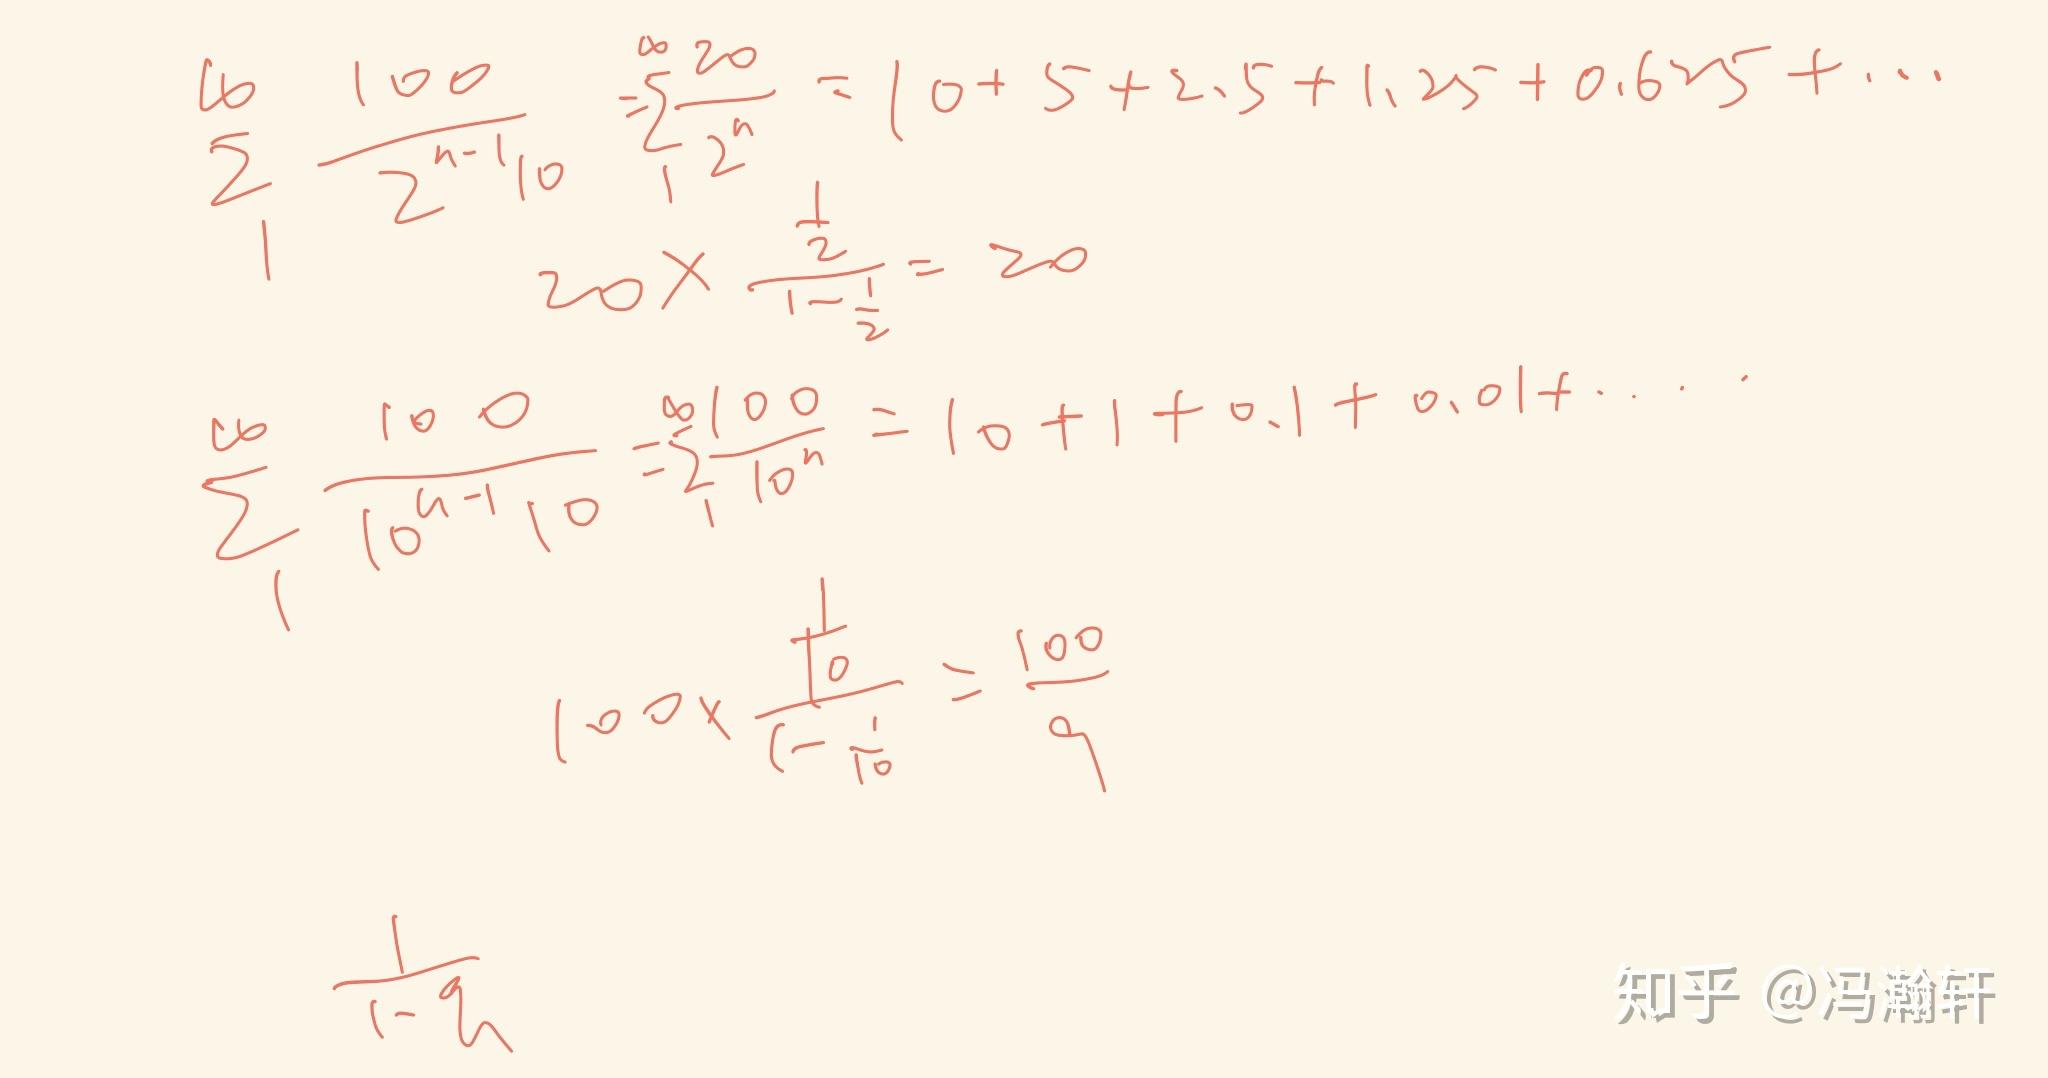 ∞ Σ 1 100 / 2^{n-1} 10 = ∞ Σ 1 20 / 2^n = 10 + 5 + 2.5 + 1.25 + 0.625 + ...
20 × (1/2) / (1 - 1/2) = 20
∞ Σ 1 100 / 10^{n-1} 10 = ∞ Σ 1 100 / 10^n = 10 + 1 + 0.1 + 0.01 + ....
100 × (1/10) / (1 - 1/10) = 100 / 9
1 / (1 - q)
知乎 @冯瀚轩